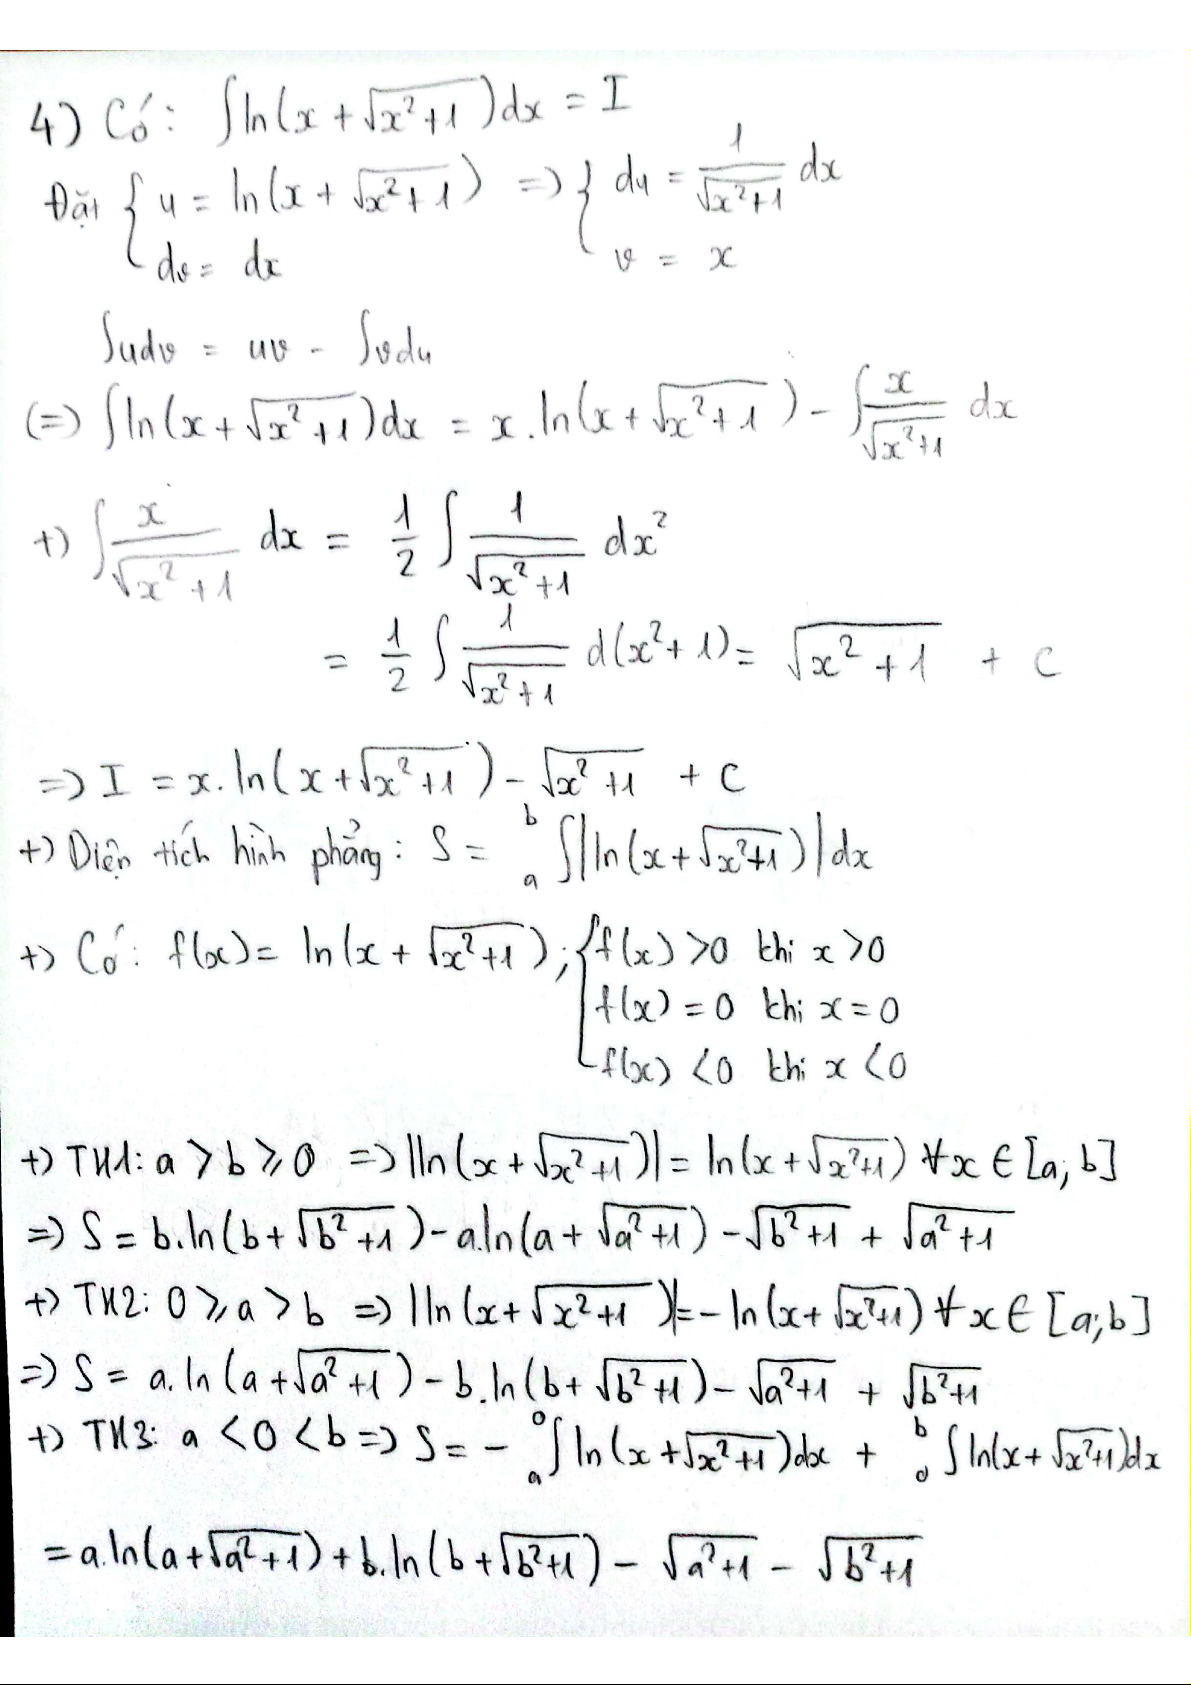 4) Có: ∫ln(x + √(x²+1))dx = I
Đặt { u = ln(x + √(x²+1)) => { du = 1/√(x²+1) dx
dv = dx v = x
∫udv = uv - ∫vdu
(=) ∫ln(x + √(x²+1))dx = x.ln(x + √(x²+1)) - ∫ x/√(x²+1) dx
+) ∫ x/√(x²+1) dx = 1/2 ∫ 1/√(x²+1) dx²
= 1/2 ∫ 1/√(x²+1) d(x²+1) = √(x²+1) + C
=> I = x.ln(x + √(x²+1)) - √(x²+1) + C
+) Diện tích hình phẳng: S = ₐᵇ∫|ln(x + √(x²+1))|dx
+) Có: f(x) = ln(x + √(x²+1)); { f(x) > 0 khi x > 0
f(x) = 0 khi x = 0
f(x) < 0 khi x < 0
+) TH1: a > b ⩾ 0 => |ln(x + √(x²+1))| = ln(x + √(x²+1)) ∀x ∈ [a; b]
=> S = b.ln(b + √(b²+1)) - a.ln(a + √(a²+1)) - √(b²+1) + √(a²+1)
+) TH2: 0 ⩾ a > b => |ln(x + √(x²+1))| = - ln(x + √(x²+1)) ∀x ∈ [a; b]
=> S = a.ln(a + √(a²+1)) - b.ln(b + √(b²+1)) - √(a²+1) + √(b²+1)
+) TH3: a < 0 < b => S = - ₐ⁰∫ln(x + √(x²+1))dx + ₀ᵇ∫ln(x + √(x²+1))dx
= a.ln(a + √(a²+1)) + b.ln(b + √(b²+1)) - √(a²+1) - √(b²+1)